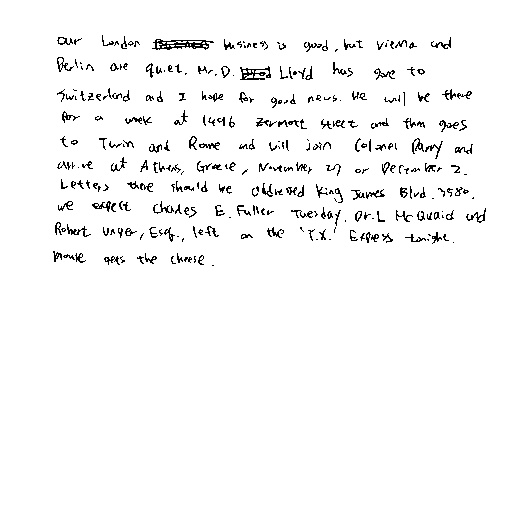 our London business is good, but Vienna and
Berlin are quiet. Mr. D. Lloyd has gone to
Switzerland and I hope for good news. He will be there
for a week at 1496 Zermott street and then goes
to Turin and Rome and will join Colonel Parry and
arrive at Athens, Greece, November 27 or December 2.
Letters there should be addressed King James Blvd. 3580.
we expect Charles E. Fuller Tuesday. Dr. L McQuaid and
Robert Unger, Esq., left on the 'Y.X.' Express tonight.
mouse gets the cheese.